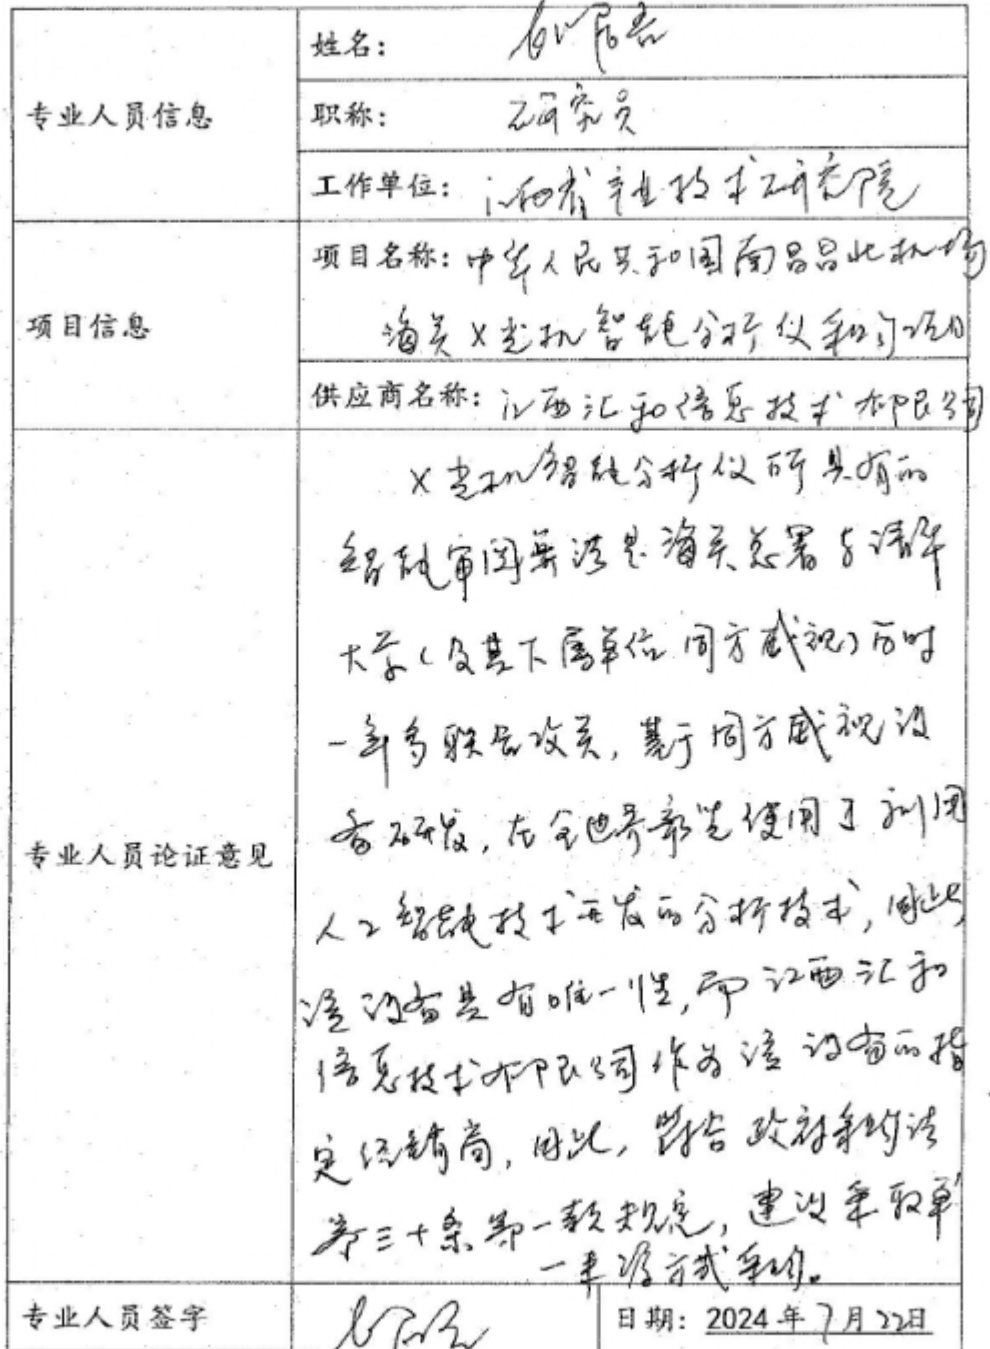 专业人员信息
姓名:
职称: 研究员
工作单位: 江西省产业技术研究院
项目信息
项目名称: 中华人民共和国南昌昌北机场
海关X光机智能分析仪采购项目
供应商名称: 江西汇和信息技术有限公司
专业人员论证意见
X光机智能分析仪所具有的
智能审图算法是海关总署与清华
大学(及其下属单位同方威视)历时
一年多联合攻关, 基于同方威视设
备研发, 在全世界率先使用了利用
人工智能技术开发的分析技术, 因此
该设备具有唯一性, 而江西汇和
信息技术有限公司作为该设备的指
定经销商, 因此, 符合政府采购法
第三十条第一款规定, 建议采取单
一来源方式采购。
专业人员签字
日期: 2024年7月22日